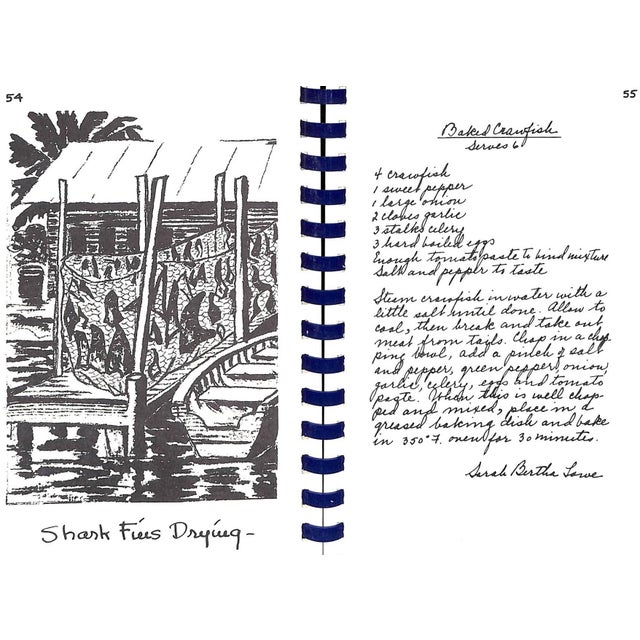 54
Shark Fins Drying-
55
Baked Crawfish
Serves 6
4 crawfish
1 sweet pepper
1 large onion
2 cloves garlic
3 stalks celery
3 hard boiled eggs
Enough tomato paste to bind mixture
Salt and pepper to taste
Steam crawfish in water with a
little salt until done. Allow to
cool, then break and take out
meat from tails. Chop in a chop-
ping bowl, add a pinch of salt
and pepper, green pepper, onion,
garlic, celery, eggs and tomato
paste. When this is well chop-
ped and mixed, place in a
greased baking dish and bake
in 350°F. oven for 30 minutes.
Sarah Bertha Lowe